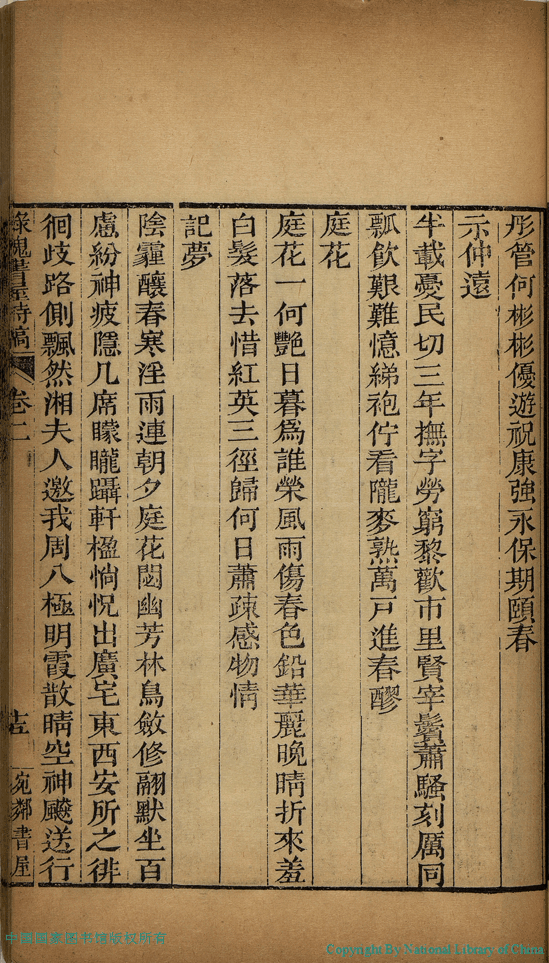 彤管何彬彬優遊祝康強永保期頤春
示仲遠
半載憂民切三年撫字勞窮黎歡市里賢宰鬢蕭騷刻厲同
瓢飲艱難憶綈袍佇看隴麥熟萬戸進春醪
庭花
庭花一何艷日暮爲誰榮風雨傷春色鉛華麗晚晴折來羞
白髮落去惜紅英三徑歸何日蕭疎感物情
記夢
陰霾釀春寒淫雨連朝夕庭花閟幽芳林鳥斂修翮默坐百
慮紛神疲隱几席矇矓躡軒楹惝怳出廣宅東西安所之徘
徊歧路側飄然湘夫人邀我周八極明霞散晴空神飈送行
綠槐書屋詩稿
卷二
宛鄰書屋
中国国家图书馆版权所有
Copyright By National Library of China